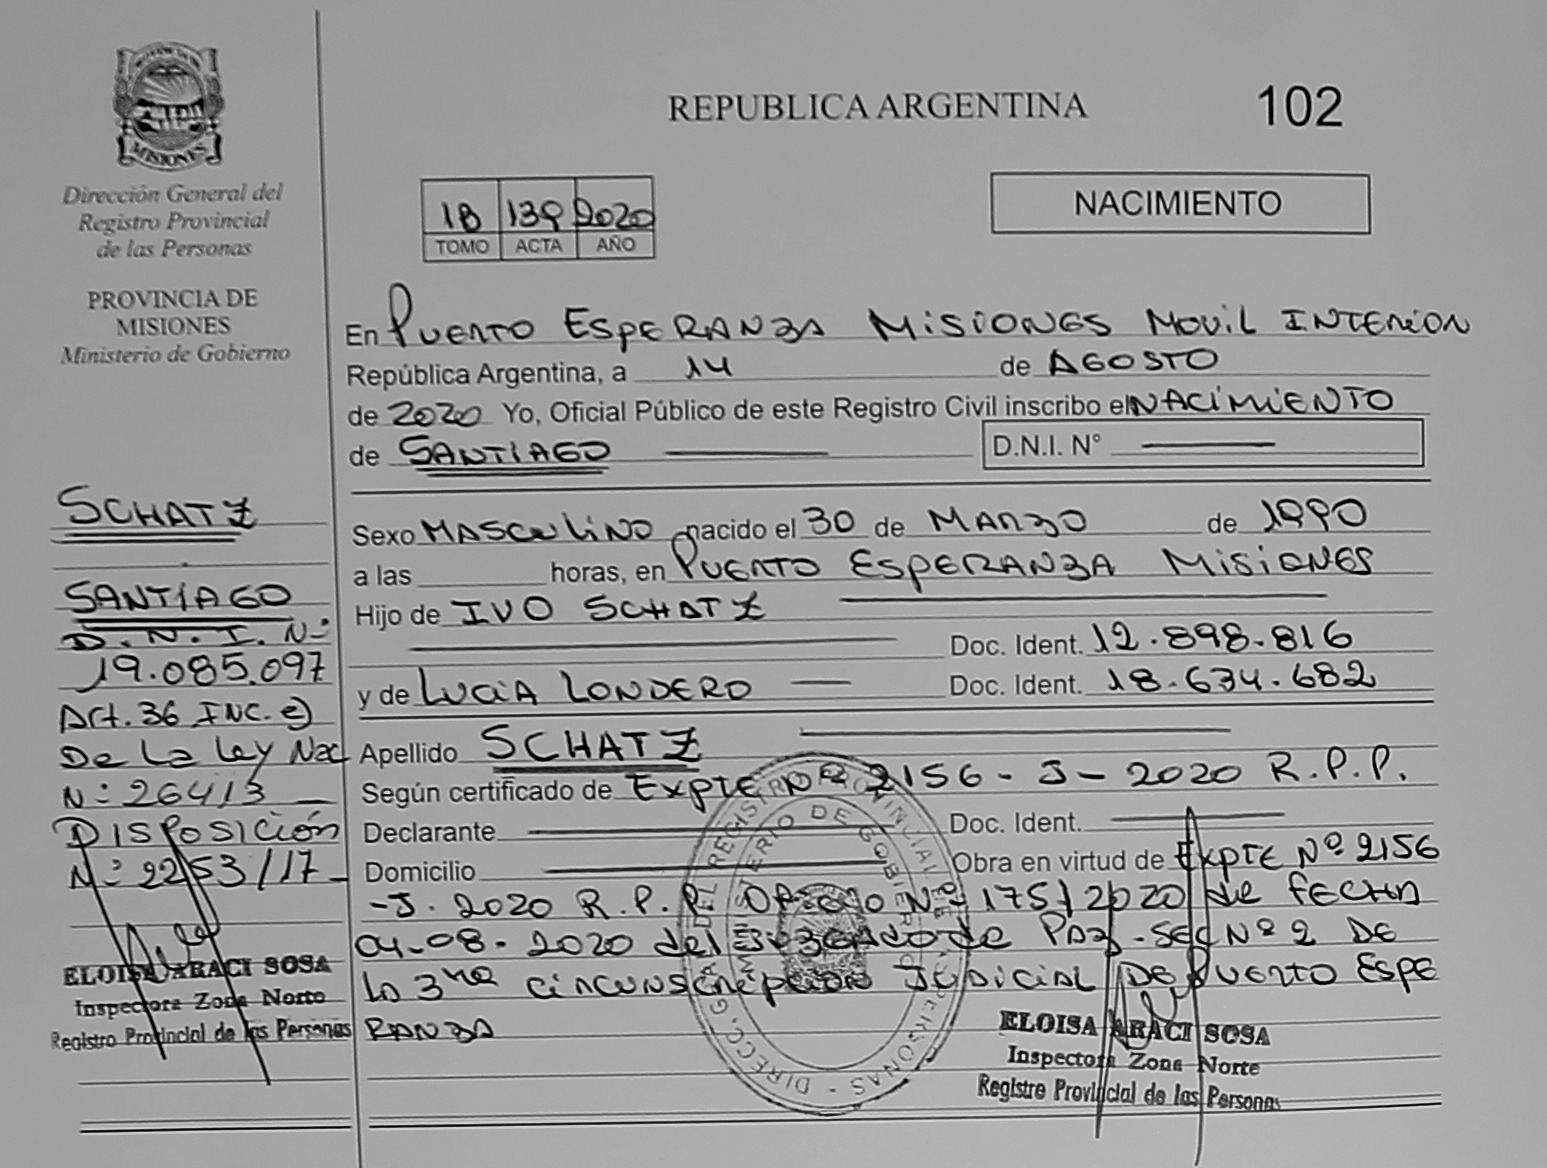 MISIONES
Dirección General del
Registro Provincial
de las Personas
PROVINCIA DE
MISIONES
Ministerio de Gobierno
SCHATZ
SANTIAGO
D.N.I. Nº
19.085.097
Art. 36 INC. e)
De La Ley Nac
Nº 26413
DISPOSICIÓN
Nº 2253/17
ELOISA ARACI SOSA
Inspectora Zona Norte
Registro Provincial de las Personas
REPUBLICA ARGENTINA 102
1B 139 2020
TOMO ACTA AÑO
NACIMIENTO
En PUERTO ESPERANZA MISIONES MOVIL INTERIOR
República Argentina, a 14 de AGOSTO
de 2020 Yo, Oficial Público de este Registro Civil inscribo el NACIMIENTO
de SANTIAGO D.N.I. N°
Sexo MASCULINO nacido el 30 de MARZO de 1990
a las horas, en PUERTO ESPERANZA MISIONES
Hijo de IVO SCHATZ
Doc. Ident. 12.898.816
y de LUCIA LONDERO Doc. Ident. 18.634.682
Apellido SCHATZ
Según certificado de EXPTE Nº 2156-J-2020 R.P.P.
Declarante Doc. Ident.
Domicilio Obra en virtud de EXPTE Nº 2156
-J-2020 R.P.P. OFICIO Nº 175/2020 de FECHA
04-08-2020 del JUZGADO de PAZ-SEC Nº 2 DE
La 3ra CIRCUNSCRIPCION JUDICIAL DE PUERTO ESPE
RANZA
ELOISA ARACI SOSA
Inspectora Zona Norte
Registro Provincial de las Personas